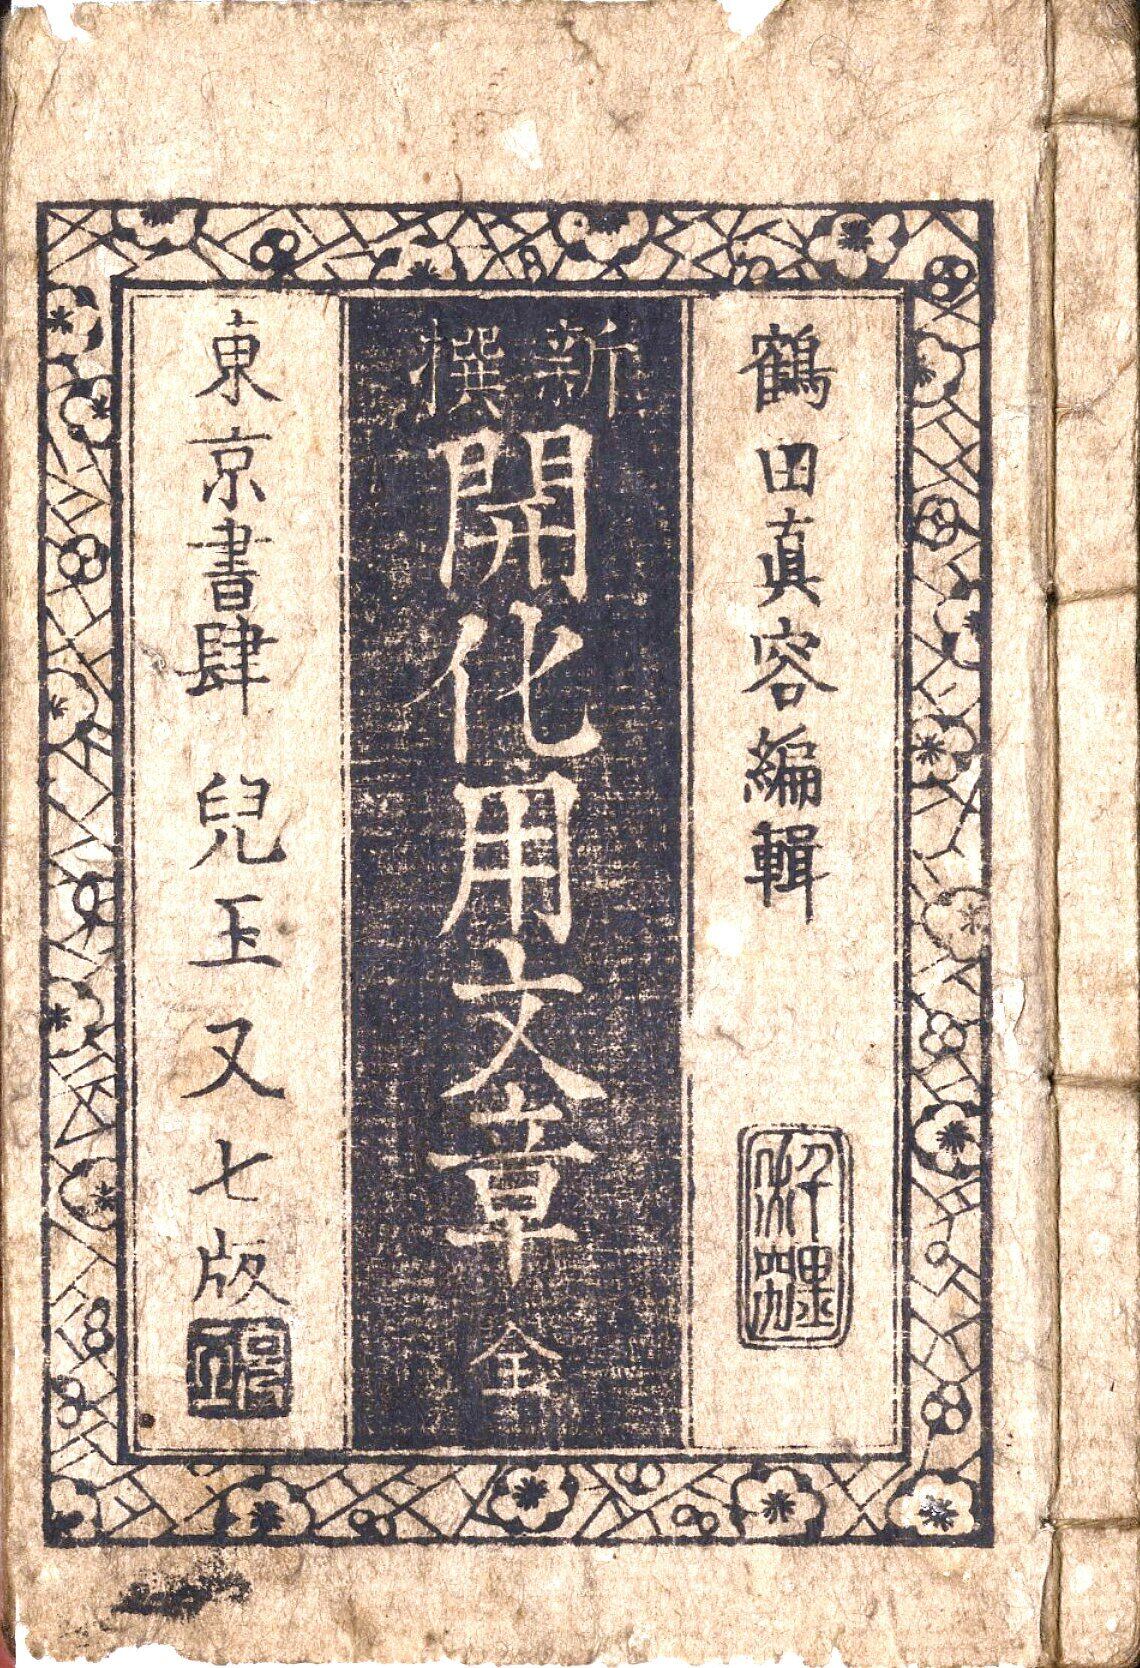 鶴田真容編輯
新撰
開化用文章 全
東京書肆 兒玉又七版